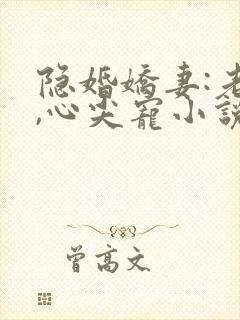 隐婚娇妻:老
,心尖宠小说
曾高文